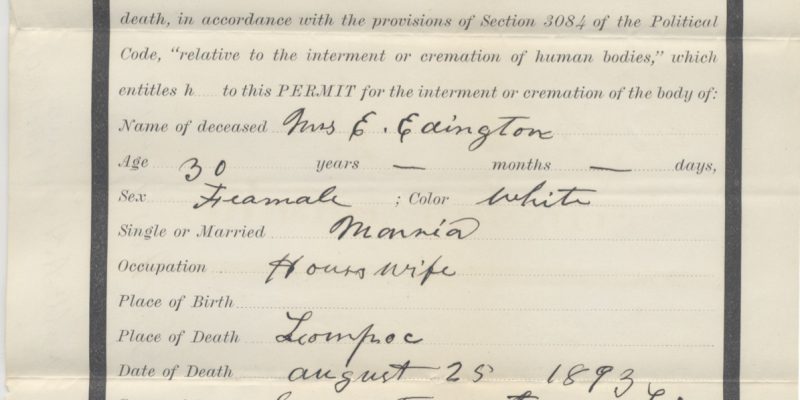 death, in accordance with the provisions of Section 3084 of the Political
Code, "relative to the interment or cremation of human bodies," which
entitles h to this PERMIT for the interment or cremation of the body of:
Name of deceased Mrs E. Edington
Age 30 years — months — days,
Sex Feamale ; Color White
Single or Married Marria
Occupation Hours wife
Place of Birth
Place of Death Lompoc
Date of Death august 25 1893